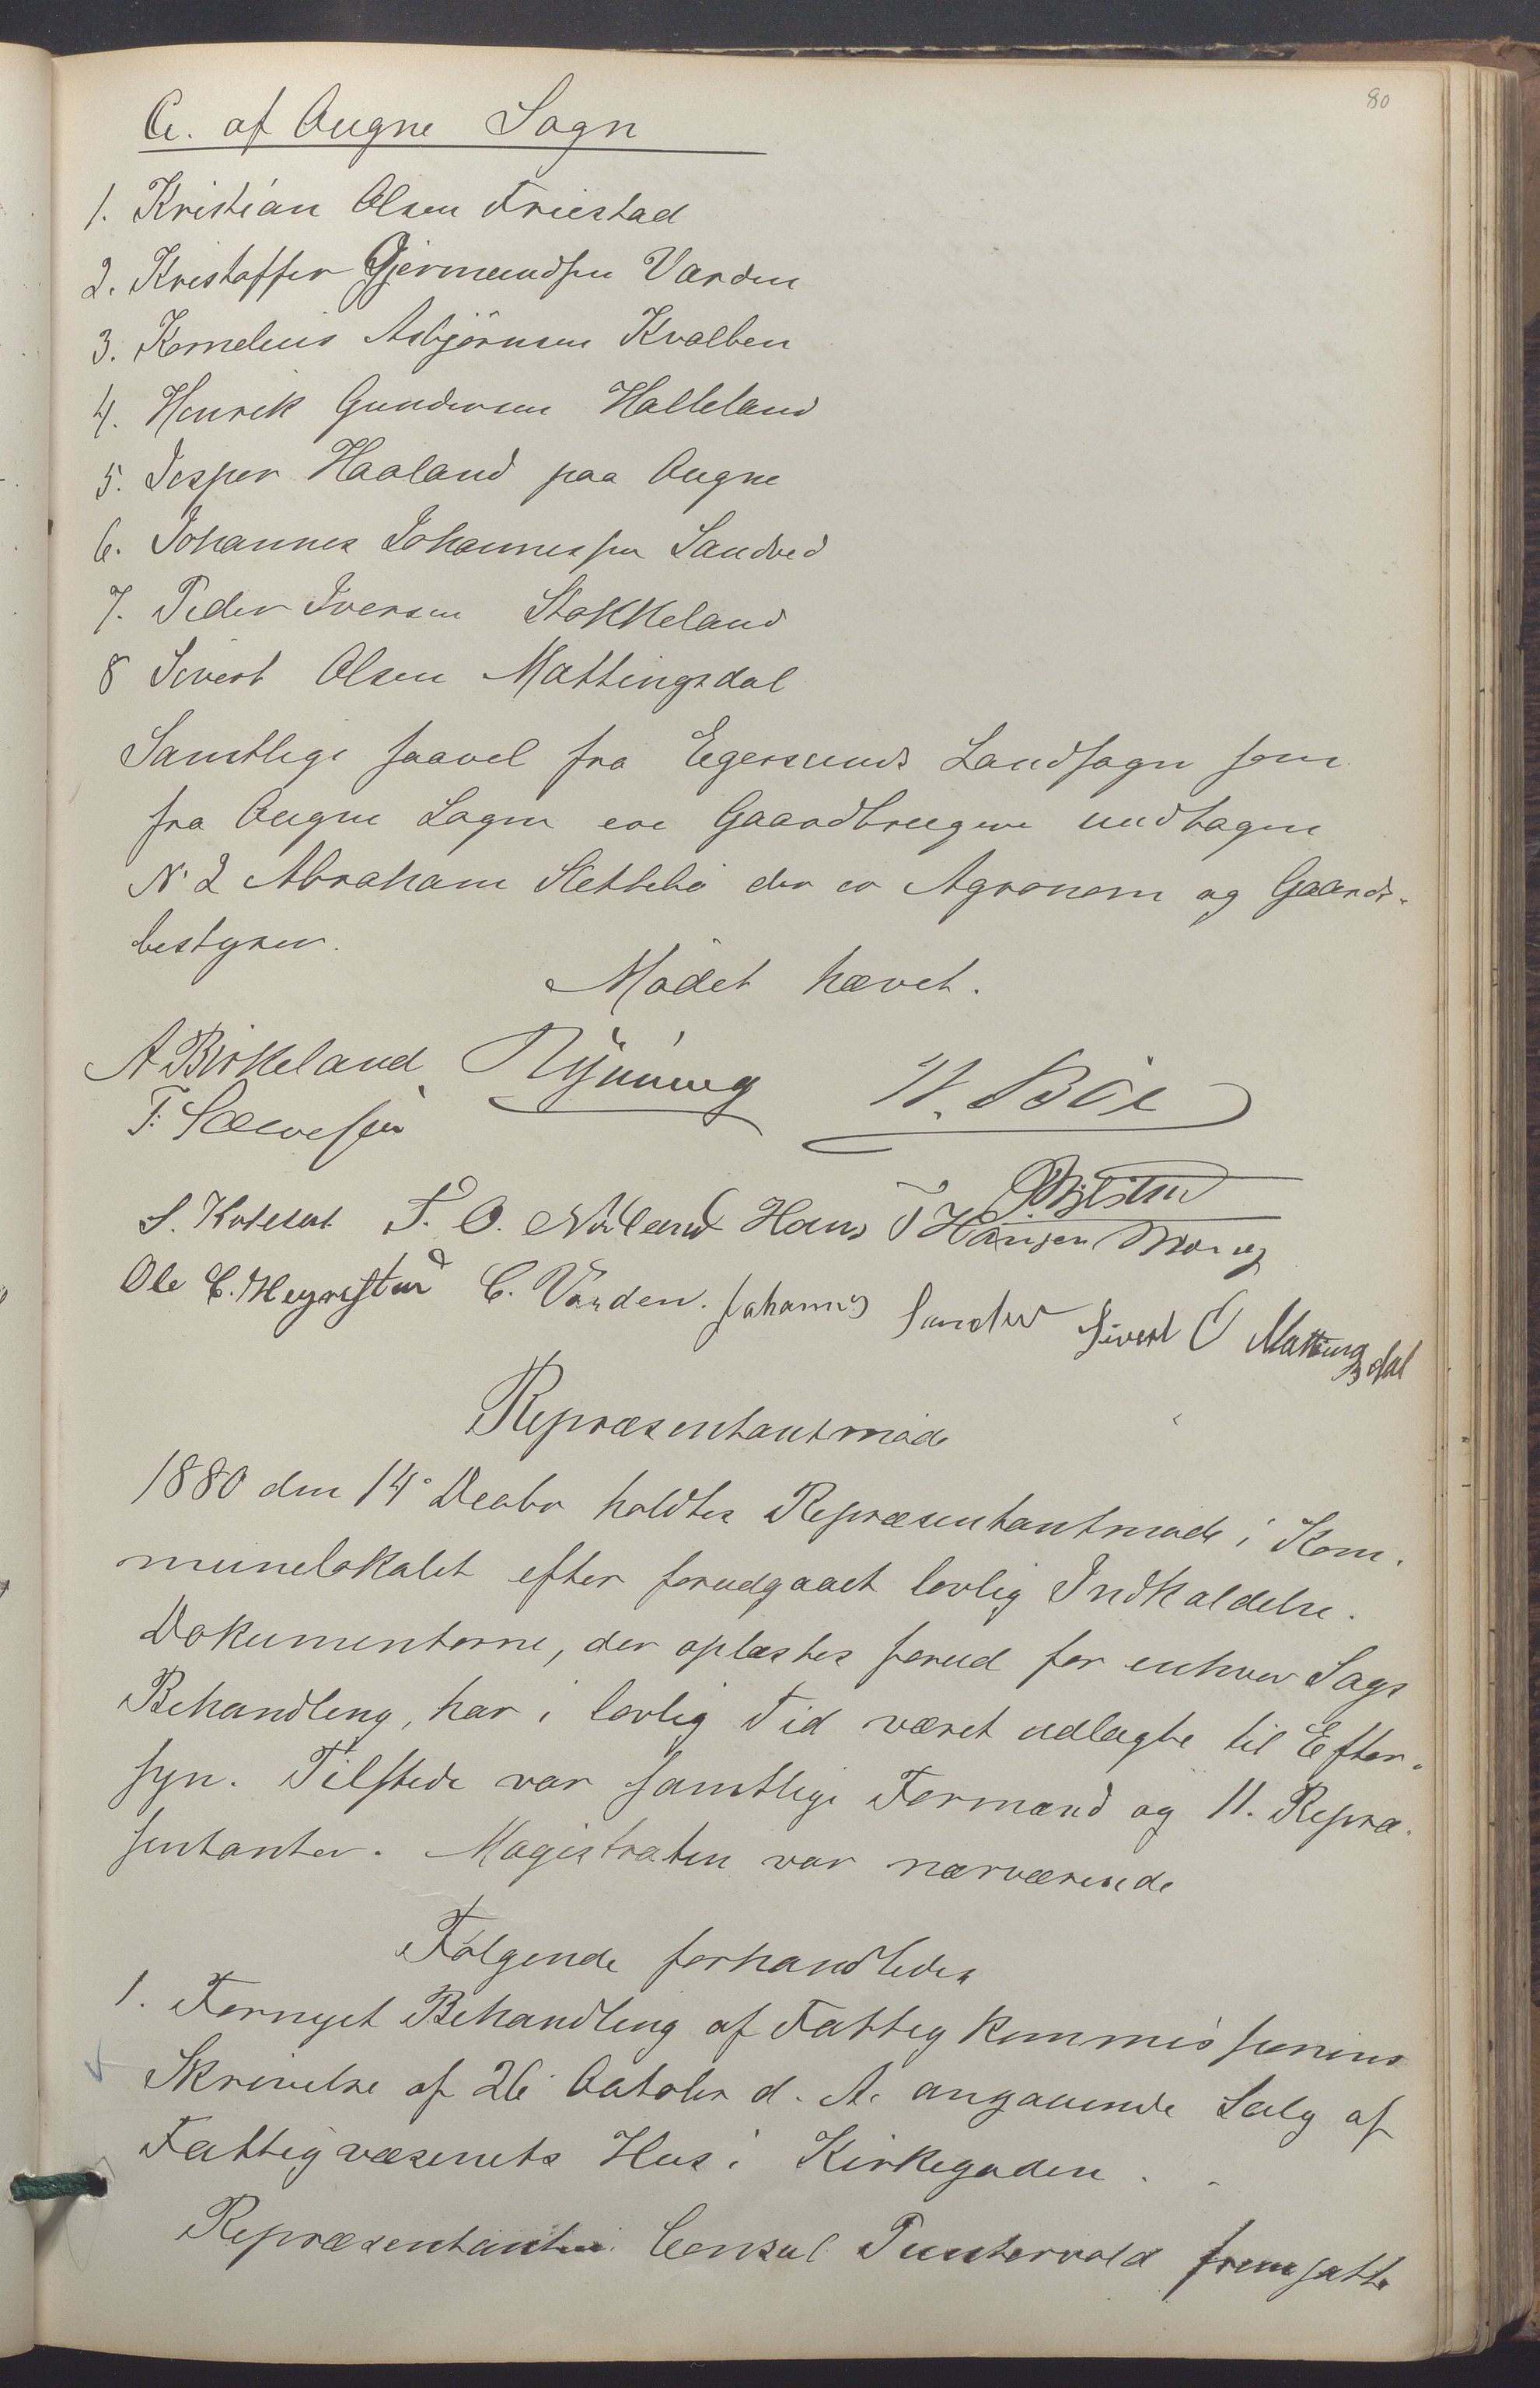 80
C. af Ougne Sogn
1. Kristian Olsen Friestad
2. Kristoffer Gjermundsen Varden
3. Kornelius Asbjørnsen Kvalben
4. Henrik Gundersen Helleland
5. Jesper Haaland paa Ougne
6. Johannes Johannessen Sandved
7. Peder Iversen Stokkeland
8 Sivert Olsen Mattingsdal
Samtlige saavel fra Egersunds Landsogn som
fra Ougne Sogn ere Gaardbrugere undtagen
N. 2 Abraham Slettebø der er Agronom og Gaards-
bestyrer.
Mødet hævet.
A Birkeland Nyning H. Böe
F.
S. F. O. Hans T Hansen
Ole C. C. Varden. Johannes Sandved Sivert O Mattingsdal
Repræsentantmøde
1880 den 14de Decbr holdtes Repræsentantmøde i Kom-
munelokalet efter forudgaaet lovlig Indkaldelse.
Dokumenterne, der oplæstes forud for enhver Sags
Behandling, har i lovlig Tid været udlagte til Efter-
syn. Tilstede var samtlige Formænd og 11. Repræ-
sentanter. Magistraten var nærværende
Følgende forhandledes
1. Fornyet Behandling af Fattigkommissionens
Skrivelse af 26 October d. A. angaaende Salg af
Fattigvæsenets Hus i Kirkegaden.
Repræsentanten Consul Puntervold fremsatte